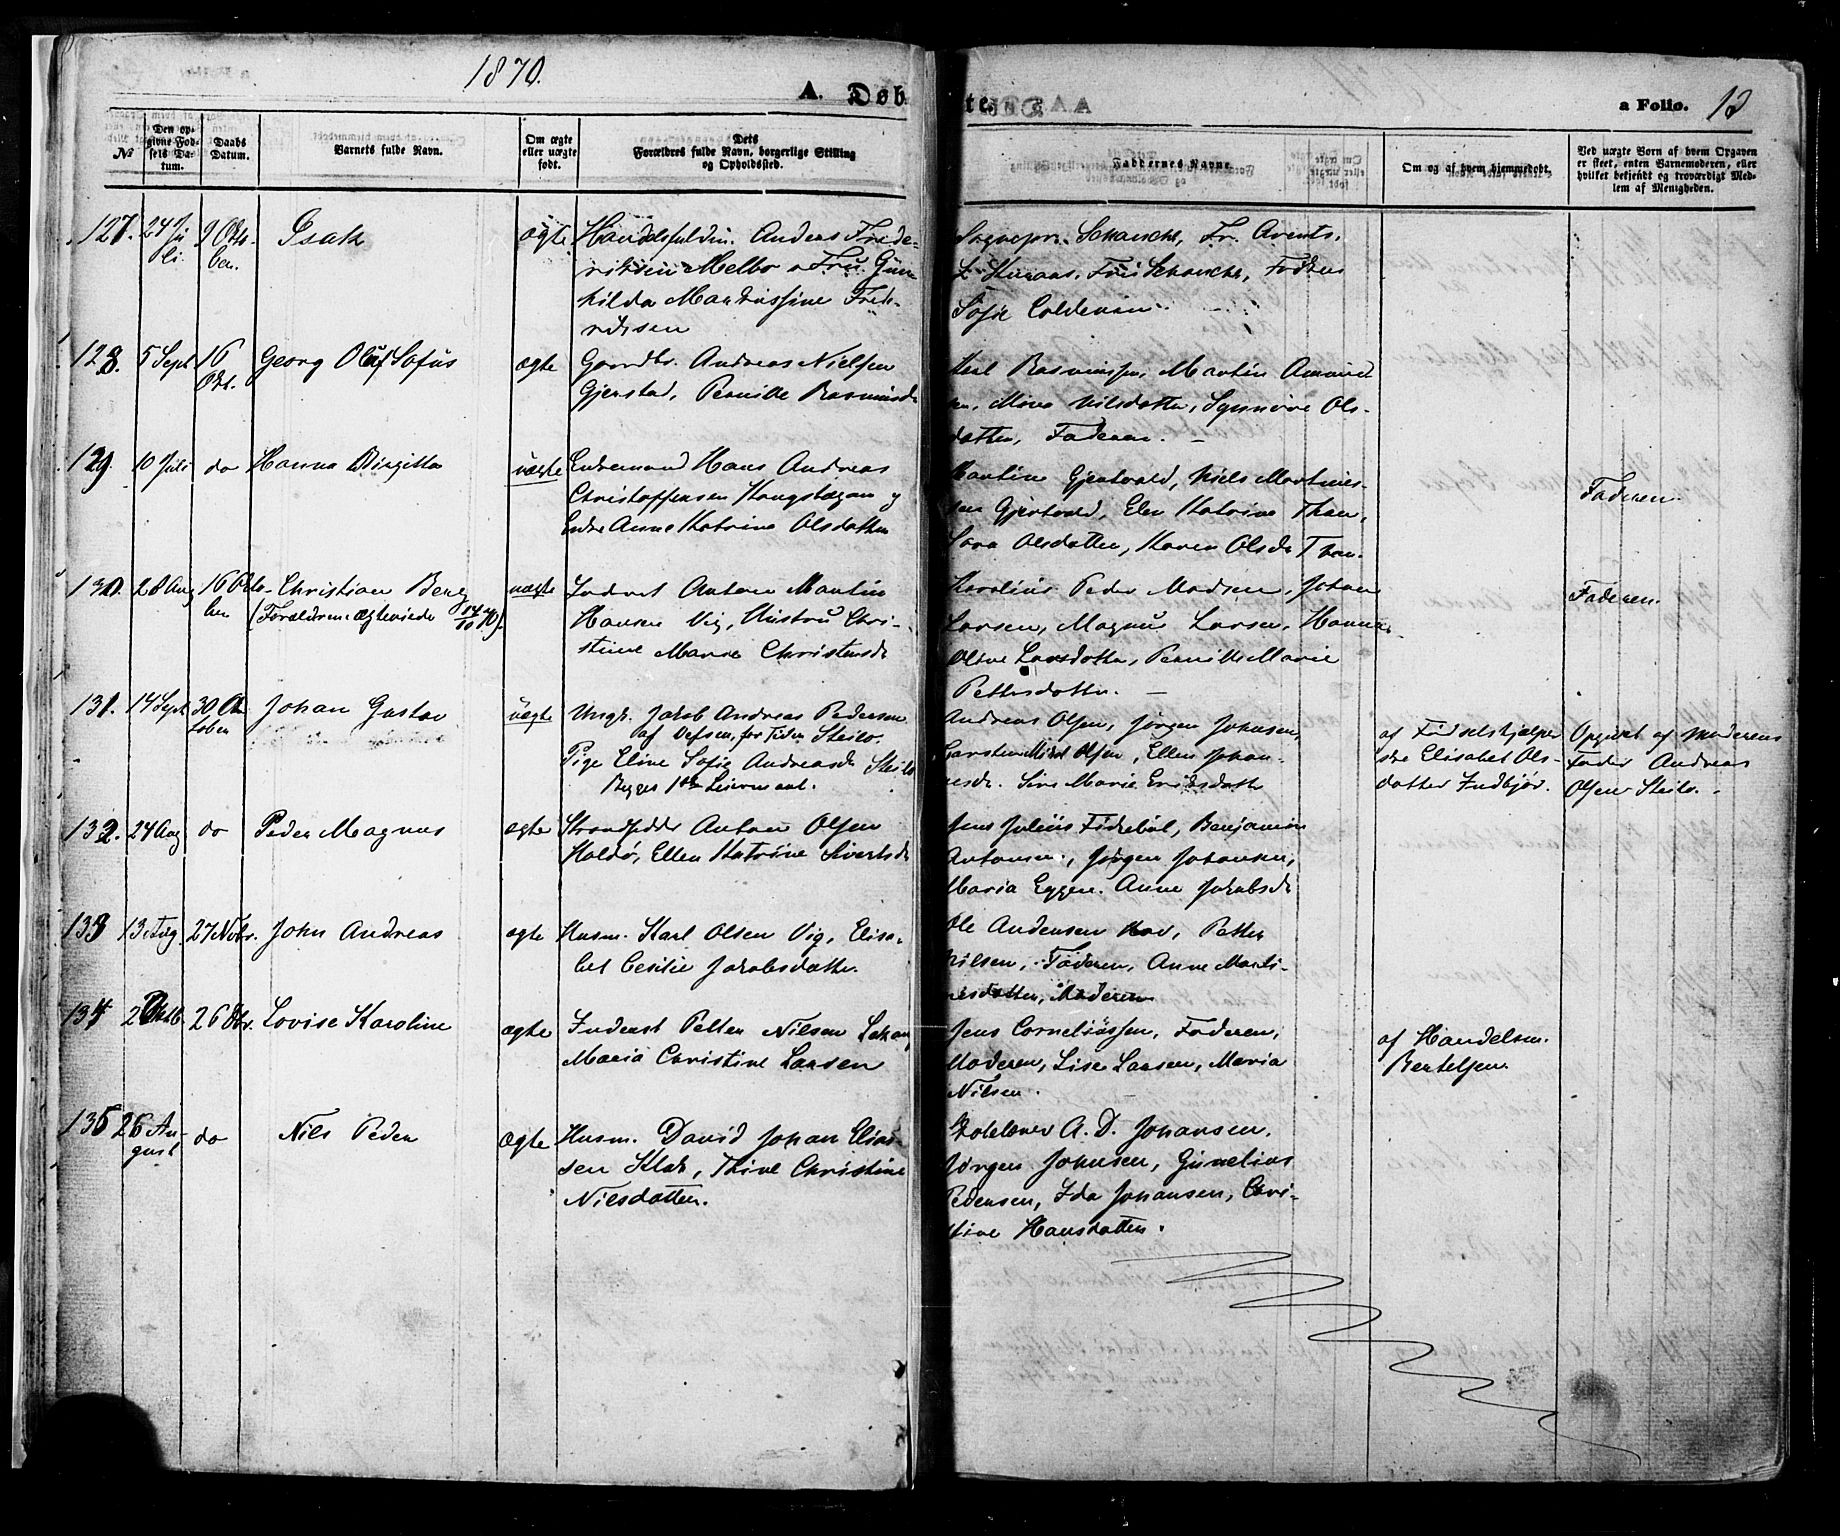 1870.
A. Døbte.
a Folio. 12
№
Den opgivne Fødsels Datum.
Daabs Datum.
Barnets fulde Navn.
Om ægte eller uægte født.
Dets Forældres fulde Navn, borgerlige Stilling og Opholdssted.
Faddernes Navne.
Om og af hvem hjemmedøbt.
Ved uægte Børn af hvem Opgaven er skeet, enten Barnemoderen, eller hvilket bekjendt og troværdigt Medlem af Menigheden.
127. 24 Juli. 9 Octo- ber. Isak ægte
Handelsfuldm. Anders Frede-
riksen Melbo o Fru Gun-
hilda Mardussine Fred-
riksen
Sognepr. Schanche, Fr. Arents.
Fru Schanche, Frøken
Sofie Coldevin.
128. 5 Sept 16 Oct. Georg Oluf Sofus ægte
Gaardbr. Andreas Nielsen
Gjerstad, Pernille Rasmusd.
Rasmussen, Martin Amund-
sen, Nilsdatter, Synnøve Ols-
datter, Faderen. -
129. 10 Juli do Hanna Birgitta uægte
Enkemand Hans Andreas
Christoffersen Kongstegen og
Enke Anne Katrine Olsdatter
Martin Gjertvold, Niels Martinus-
sen Gjertvold, Elen Katrine Than,
Sara Olsdatter, Karen Olsd. Than.
Faderen.
130. 28 Aug 16 Octo- ber Christian Berg
(Forældrene ægteviede 14/10 70). uægte
Inderst Anton Martin
Hansen Vig, Hustru Chri-
stine Marie Christensd.
Karolius Peder Madsen, Johan
Larsen, Magnus Larsen, Hanna
Oline Larsdatter, Pernille Marie
Pettersdatter. -
Faderen.
131. 14 Sept 30 Oc tober Johan Gustav uægte
Ungk. Jakob Andreas Pedersen
af Vefsen, for Tiden Steilo.
Pige Eline Sofie Andreasd. Steilo
Begges 1ste Leiermaal.
Andreas Olsen, Jørgen Johnsen,
Olsen, Ellen Johan-
nesd. Marie Eriksdatter
af Fødselshjælper
ske Elisabet Ols-
datter Indbjør.
Opgivet af Moderens
Fader Andreas
Olsen Steilo.
132. 24 Aug do Peder Magnus ægte
Strandsidder Anton Olsen
Haldø, Ellen Katrine Sivertsd.
Jens Julius Fiskebøl, Benjamin
Antonsen, Jørgen Johansen,
Maria Eggen. Anne Jakobsd.
133 13 Aug 27 Nobr. John Andreas ægte
Husm. Karl Olsen Vig, Elisa-
bet Cesilie Jakobsdatter.
Ole Andersen Hov, Petter
Nilsen, Faderen, Anne Marti-
nesdatter, Moderen
134 26 Dbr. Lovise Karoline ægte
Inderst Petter Nilsen
Maria Christine Larsen
Jens Corneliussen, Faderen,
Moderen, Lise Larsen, Maria
Nilsen.
af Handelsm.
Bertelsen.
135 26 Au- gust do Nils Peder ægte
Husm. David Johan Elias-
sen Klak, Trine Christine
Nilsdatter.
Skolelærer A. D. Johansen.
Jørgen Johnsen, Gunelius
Pedersen, Ida Johansen, Chri-
stine Hansdatter.